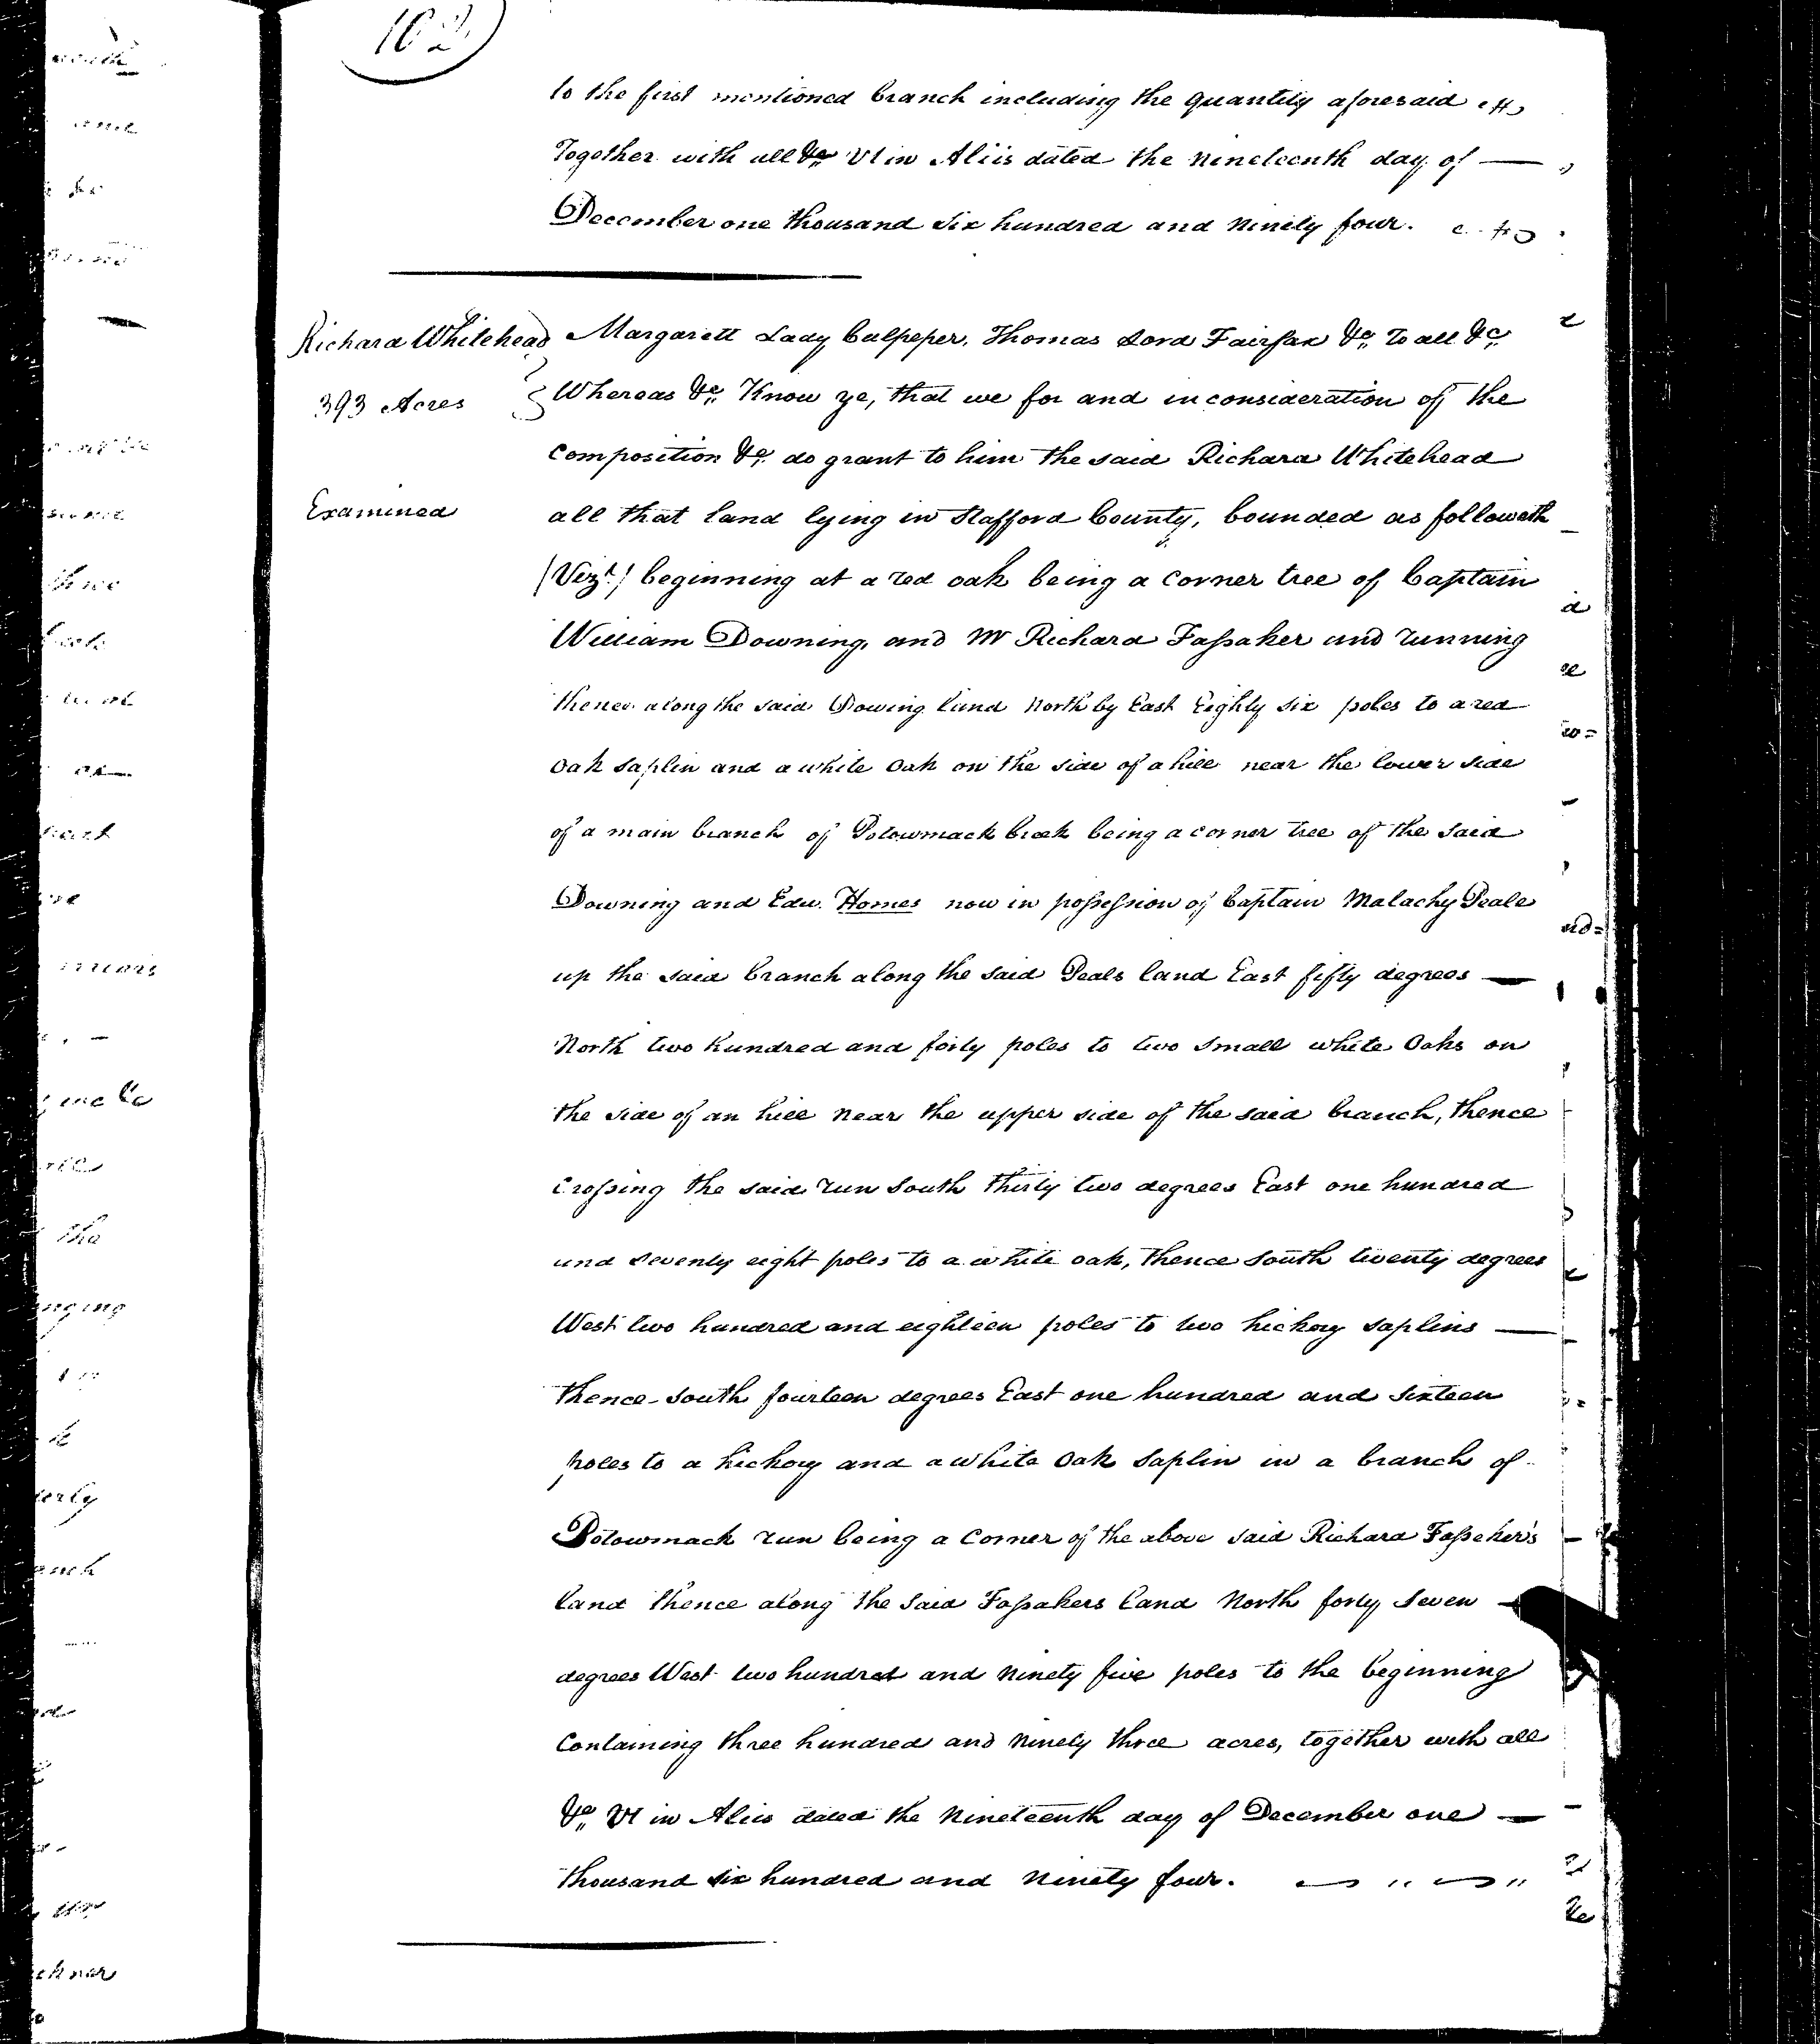 162
to the first mentioned branch including the quantity aforesaid
Together with all &c Ut in Aliis dated the nineteenth day of —
December one thousand six hundred and ninety four.
Richard Whitehead
393 Acres
Examined
Margarett Lady Culpeper, Thomas Lord Fairfax &c To all &c
Whereas &c Know ye, that we for and in consideration of the
Composition &c do grant to him the said Richard Whitehead
all that land lying in Stafford County, bounded as followeth
(Vizt) beginning at a red oak being a corner tree of Captain
William Downing, and Mr Richard Fassaker and running
thence along the said Dowing land North by East Eighty six poles to a red
Oak saplin and a white Oak on the side of a hill near the lower side
of a main branch of Potowmack Creek being a corner tree of the said
Downing and Edw. Homes now in possession of Captain Malachy Peale
up the said branch along the said Peals land East fifty degrees —
North two hundred and forty poles to two small white Oaks on
the side of an hill near the upper side of the said branch, thence
Crossing the said run South thirty two degrees East one hundred
and seventy eight poles to a white oak, thence South twenty degrees
West two hundred and eighteen poles to two hickory saplins —
thence South fourteen degrees East one hundred and sixteen
poles to a hickory and a white Oak Saplin in a branch of
Potowmack run being a Corner of the above said Richard Fasseker's
land thence along the said Fassakers land North forty seven —
degrees West two hundred and ninety five poles to the beginning
Containing three hundred and ninety three acres, together with all
&c Ut in Aliis dated the Nineteenth day of December one —
thousand six hundred and ninety four.